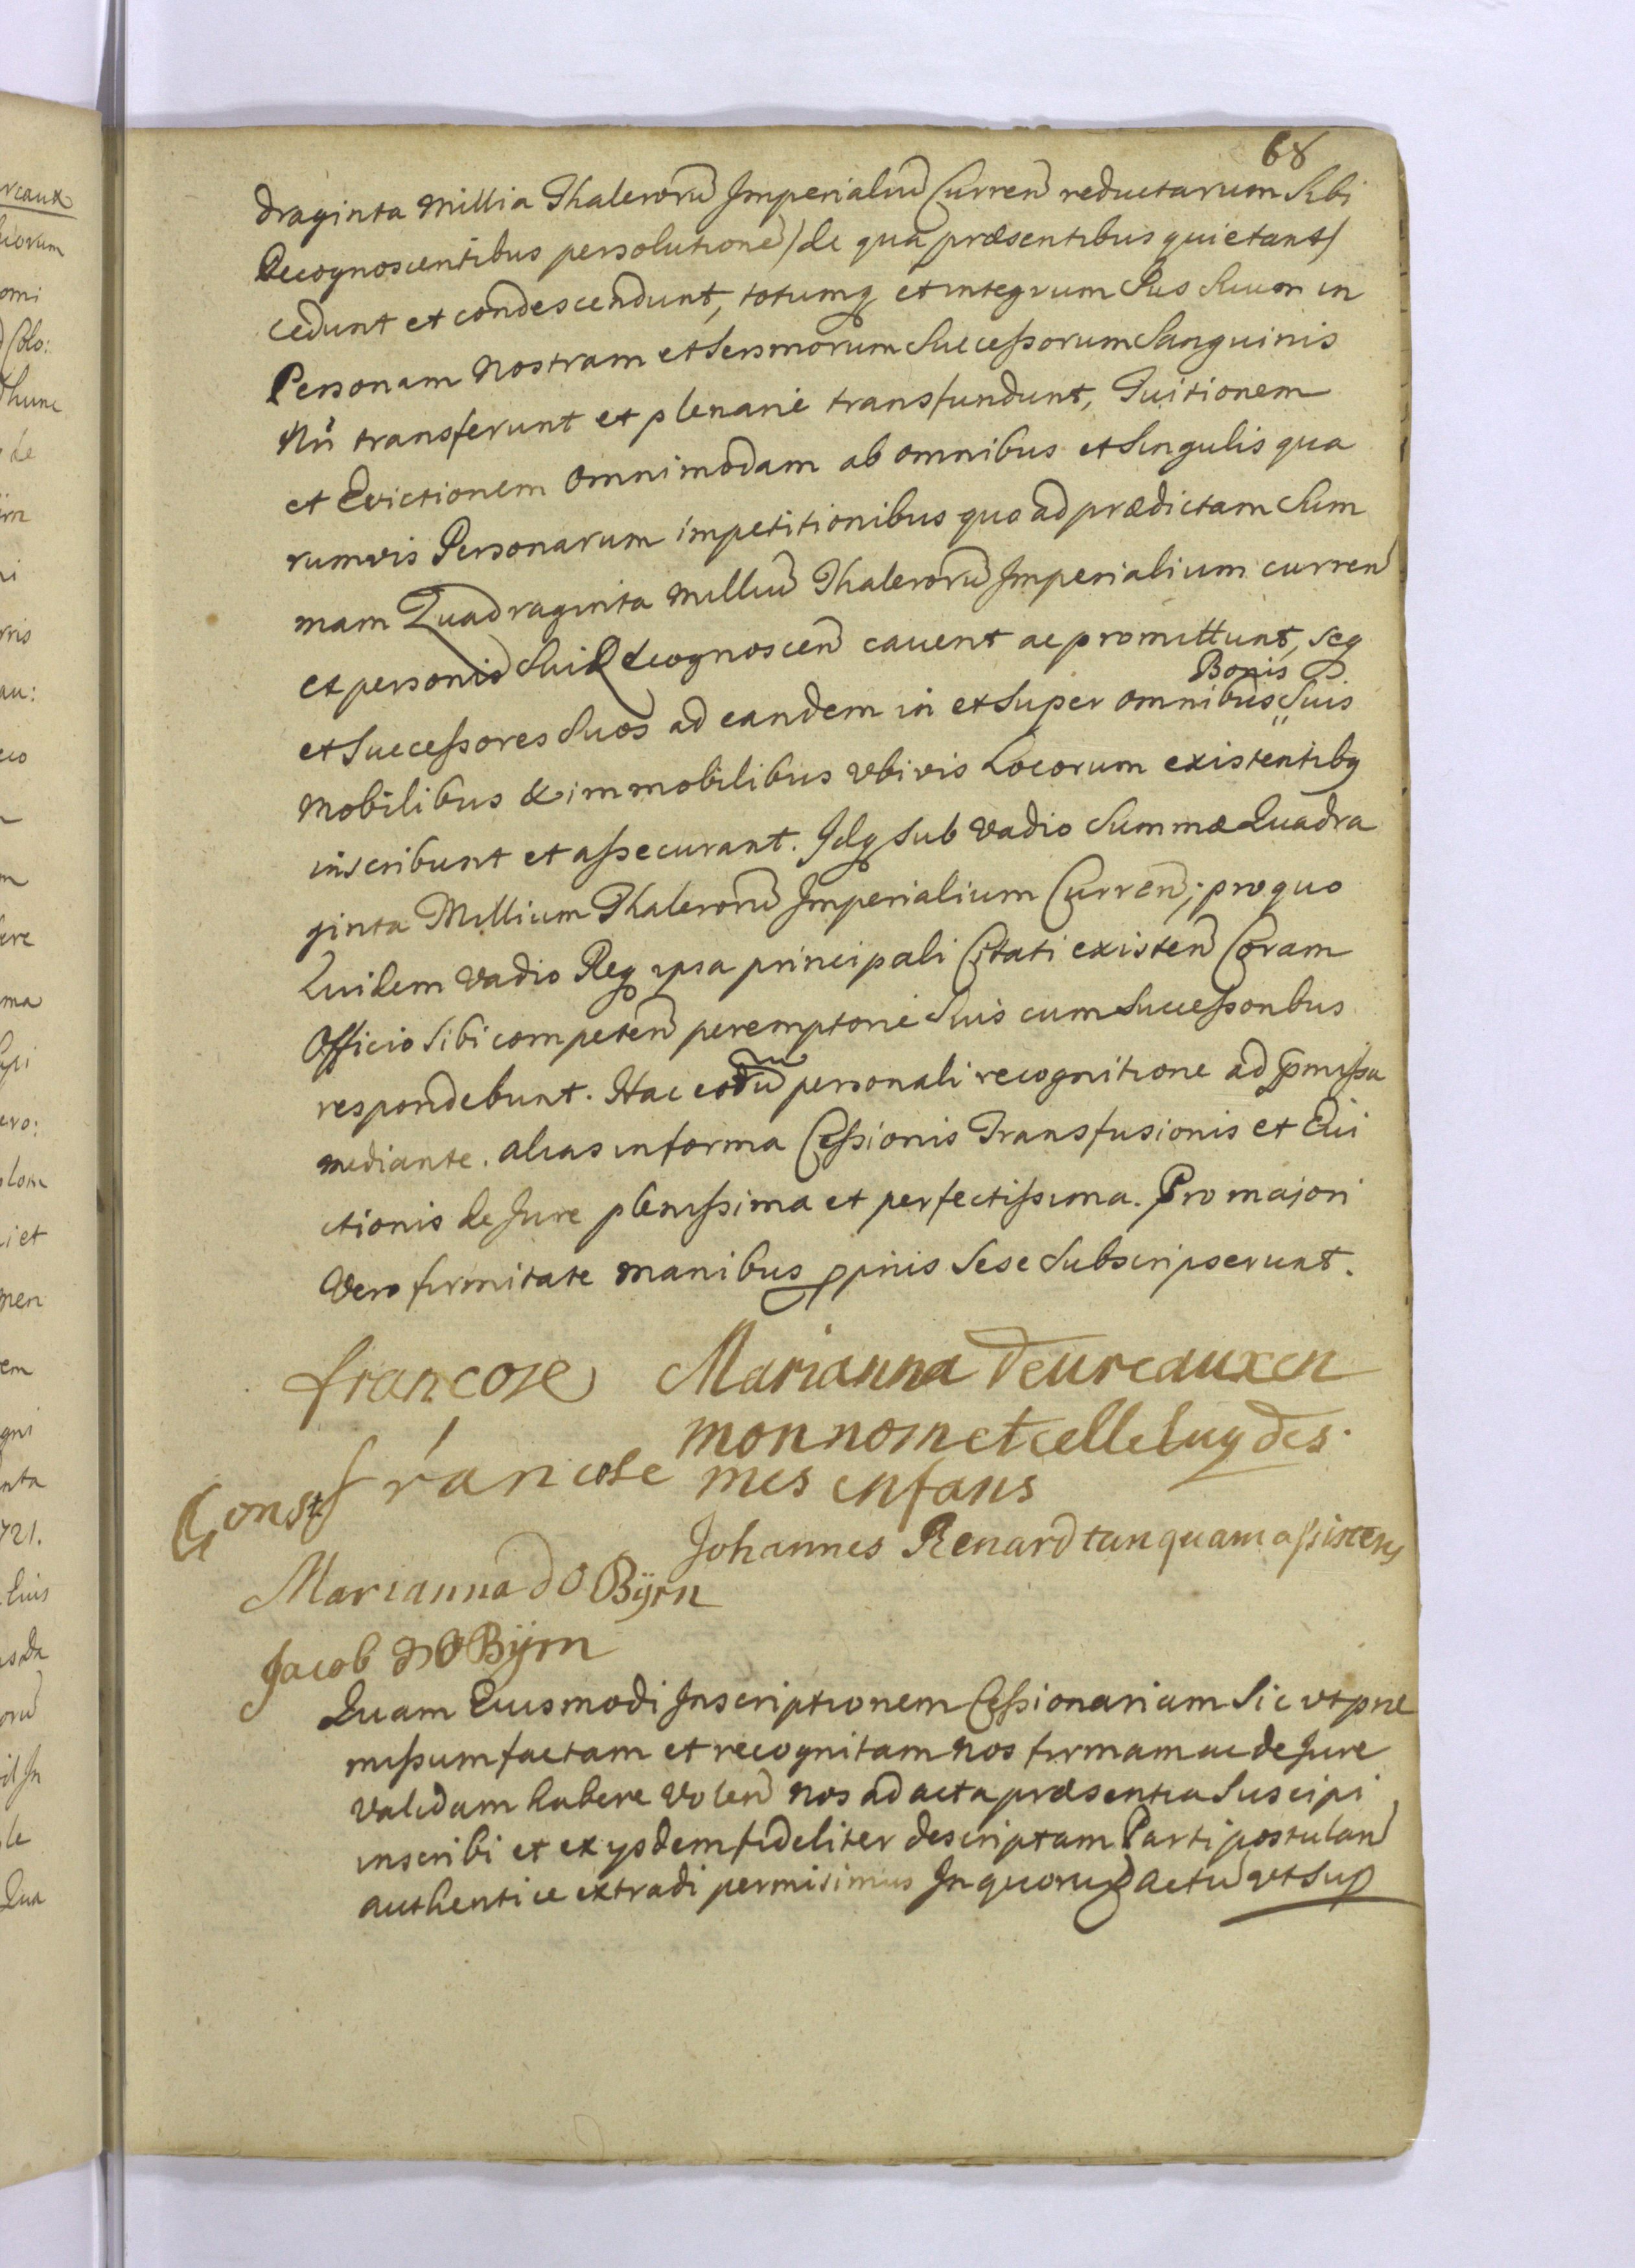 68
draginta Millia Thalerorũ Imperialiũ Curreñ reductarum Sibi
Recognoscentibus persolutione) de qua præsentibus quietant)
cedunt et condescendunt, totumq et integrum Jus Suum in
Personam Nostram et Sersmorum Successorum Sanguinis
Nri transferunt et plenarie transfundunt, Tuitionem
et Evictionem omnimodam ab omnibus et Singulis qua
rumvis Personarum impetitionibus quo ad prædictam Sum
mam Quadraginta Milliũ Thalerorũ Imperialium curreñ
et personis Sui Recognosceñ cavent ac promittunt, seq
et Successores Suos ad eandem in et Super omnibus Bonis Suis
Mobilibus & immobilibus vbivis Locorum existentibq
inscribunt et assecurant. Idq sub Vadio Summæ Quadra
ginta Millium Thalerorũ Imperialium Curreñ; pro quo
Quidem Vadio Req ipsa principali Citati existeñ Coram
Officio Sibi competeñ peremptorie Suis cum Successoribus
respondebunt. Hac eorũ personali recognitione ad pmissa
mediante. alias in forma Cessionis Transfusionis et Evi
ctionis de Jure plenissima et perfectissima. Pro majori
Vero firmitate manibus ppriis Sese Subscripserunt.
francose Marianna Deureauxen
mon nom et celle luy des
Const francose mes enfans
Johannes Renard tanquam assistens
Marianna d O Bÿrn
Jacob d O Bÿrn
Quam Eiusmodi Inscriptionem Cessionariam Sic vt præ
missum factam et recognitam Nos firmam ac de Jure
Validam habere Voleñ Nos ad acta præsentia Suscipi
inscribi et ex ijsdem fideliter descriptam Parti postulañ
authentice extradi permisimus In quorum actũ vt sup